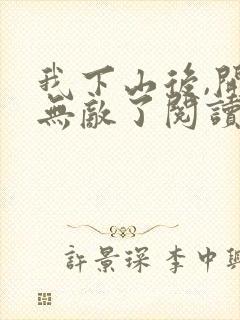 我下山後,開
無敵了閱讀
許景琛 李中興